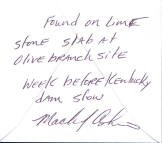 Found on Lime
stone slab at
Olive branch site
Week before Kentucky
dam show